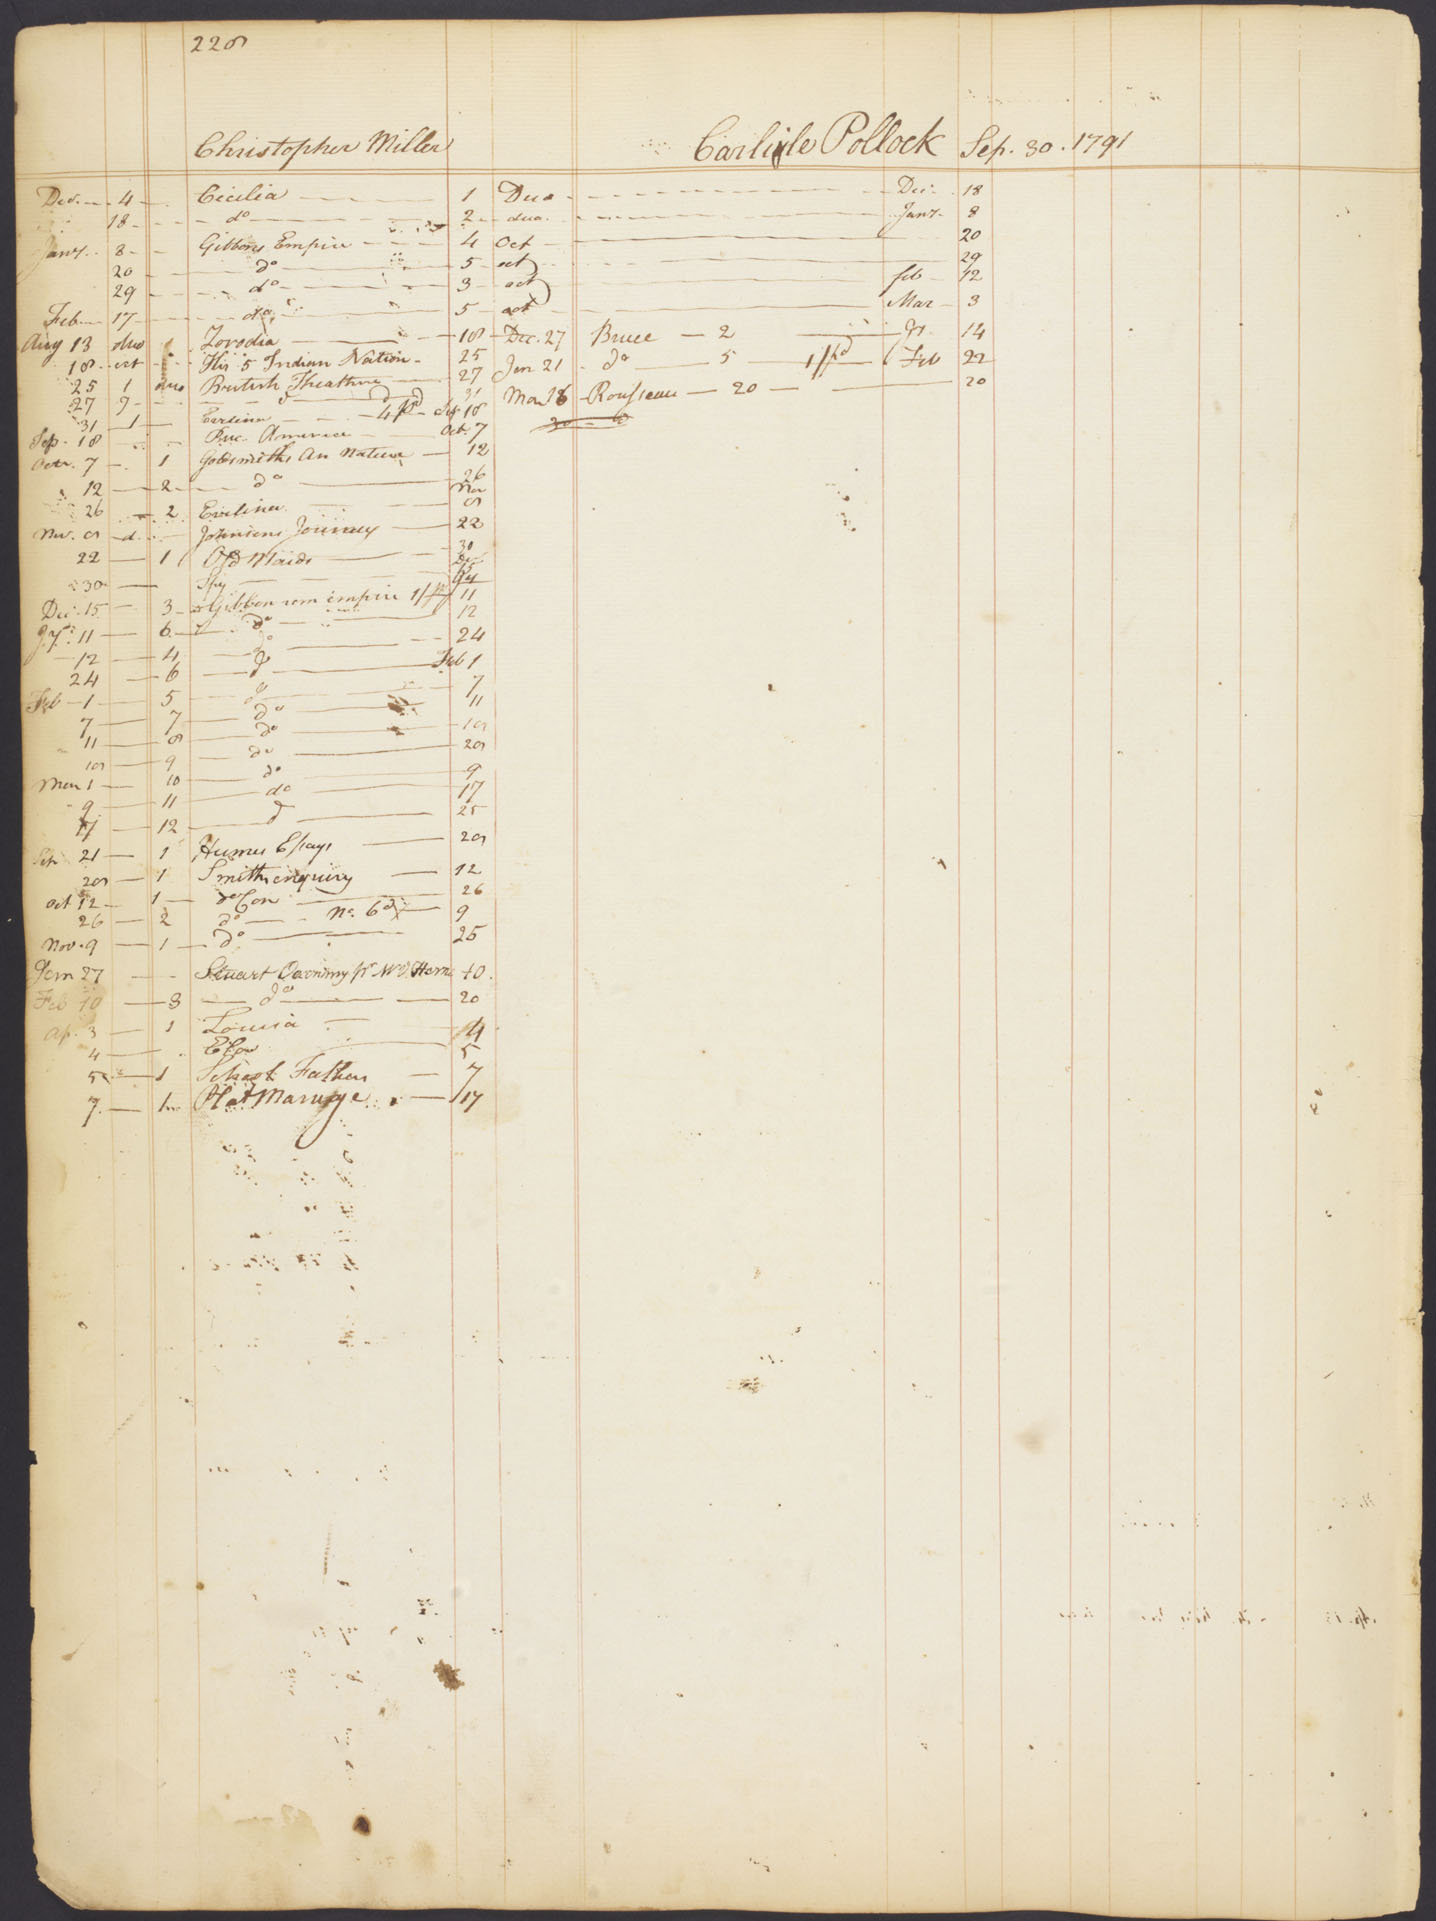 228
Christopher Miller
Carlisle Pollock Sep. 30. 1791
Dec. 4 Cicilia 1 Duo Dec. 18
18 do 2 duo. Jany. 8
Jany. 8 Gibbons Empire 4 Oct 20
20 do 5 oct 29
29 do 3 oct feb 12
Feb 17 do 5 oct Mar 3
Aug 13 duo 18 Dec. 27 Bruce 2 14
18 oct His 5 Indian Nation 25 Jan 21 do 5 1/pd Feb 22
25 1 duo British Theathre 27 Rousseau 20 20
27 9 31
31 1 4 pd Sep 18
Sep. 18 Oct. 7
Octr. 7 1 Goldsmiths An Nature 12
12 2 do 26
26 2 Evelina Nov 8
Nov. 8 Johnsons Journey 22
22 1 Old Maids 30
30 Spy Dec 15
Dec. 15 3 Gibbon rom empire
11 6 do 12
12 4 do 24
24 6 do Feb 1
Feb 1 5 do 7
7 7 do 11
11 8 do 18
18 9 do 28
Mar 1 10 do 9
9 11 do 17
17 12 do 25
21 1 Humes Essays 28
28 1 Smiths enquiry 12
Oct 12 1 26
26 2 do No. 6 9
Nov. 9 1 do 25
Jan 27 Stuart Oeconomy 10
Feb 10 3 do 20
Ap. 3 1 Louisa 4
4 5
5 1 School Fathers 7
7 Plat Marriage 17